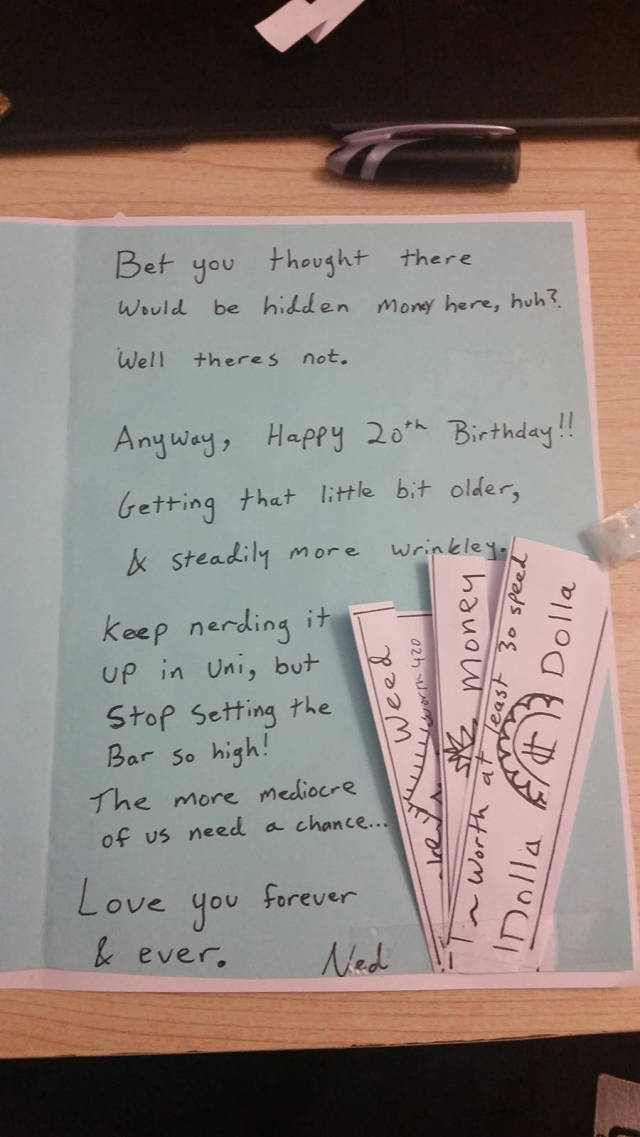 Bet you thought there
Would be hidden money here, huh?
Well theres not.
Anyway, Happy 20th Birthday!!
Getting that little bit older,
& steadily more wrinkley.
Keep nerding it
up in Uni, but
Stop setting the
Bar so high!
The more mediocre
of us need a chance...
Love you forever
& ever.
Ned
Weed
worth 420
Money
~ worth at least 30 speed
Dolla $ Dolla